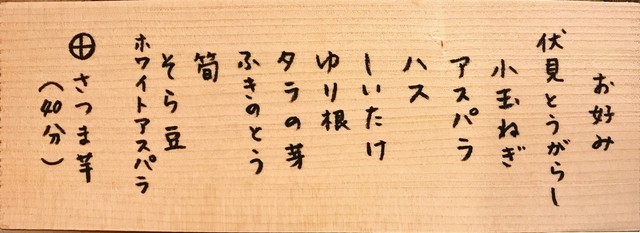 お好み
伏見とうがらし
小玉ねぎ
アスパラ
ハス
しいたけ
ゆり根
タラの芽
ふきのとう
筍
そら豆
ホワイトアスパラ
⊕さつま芋
(40分)